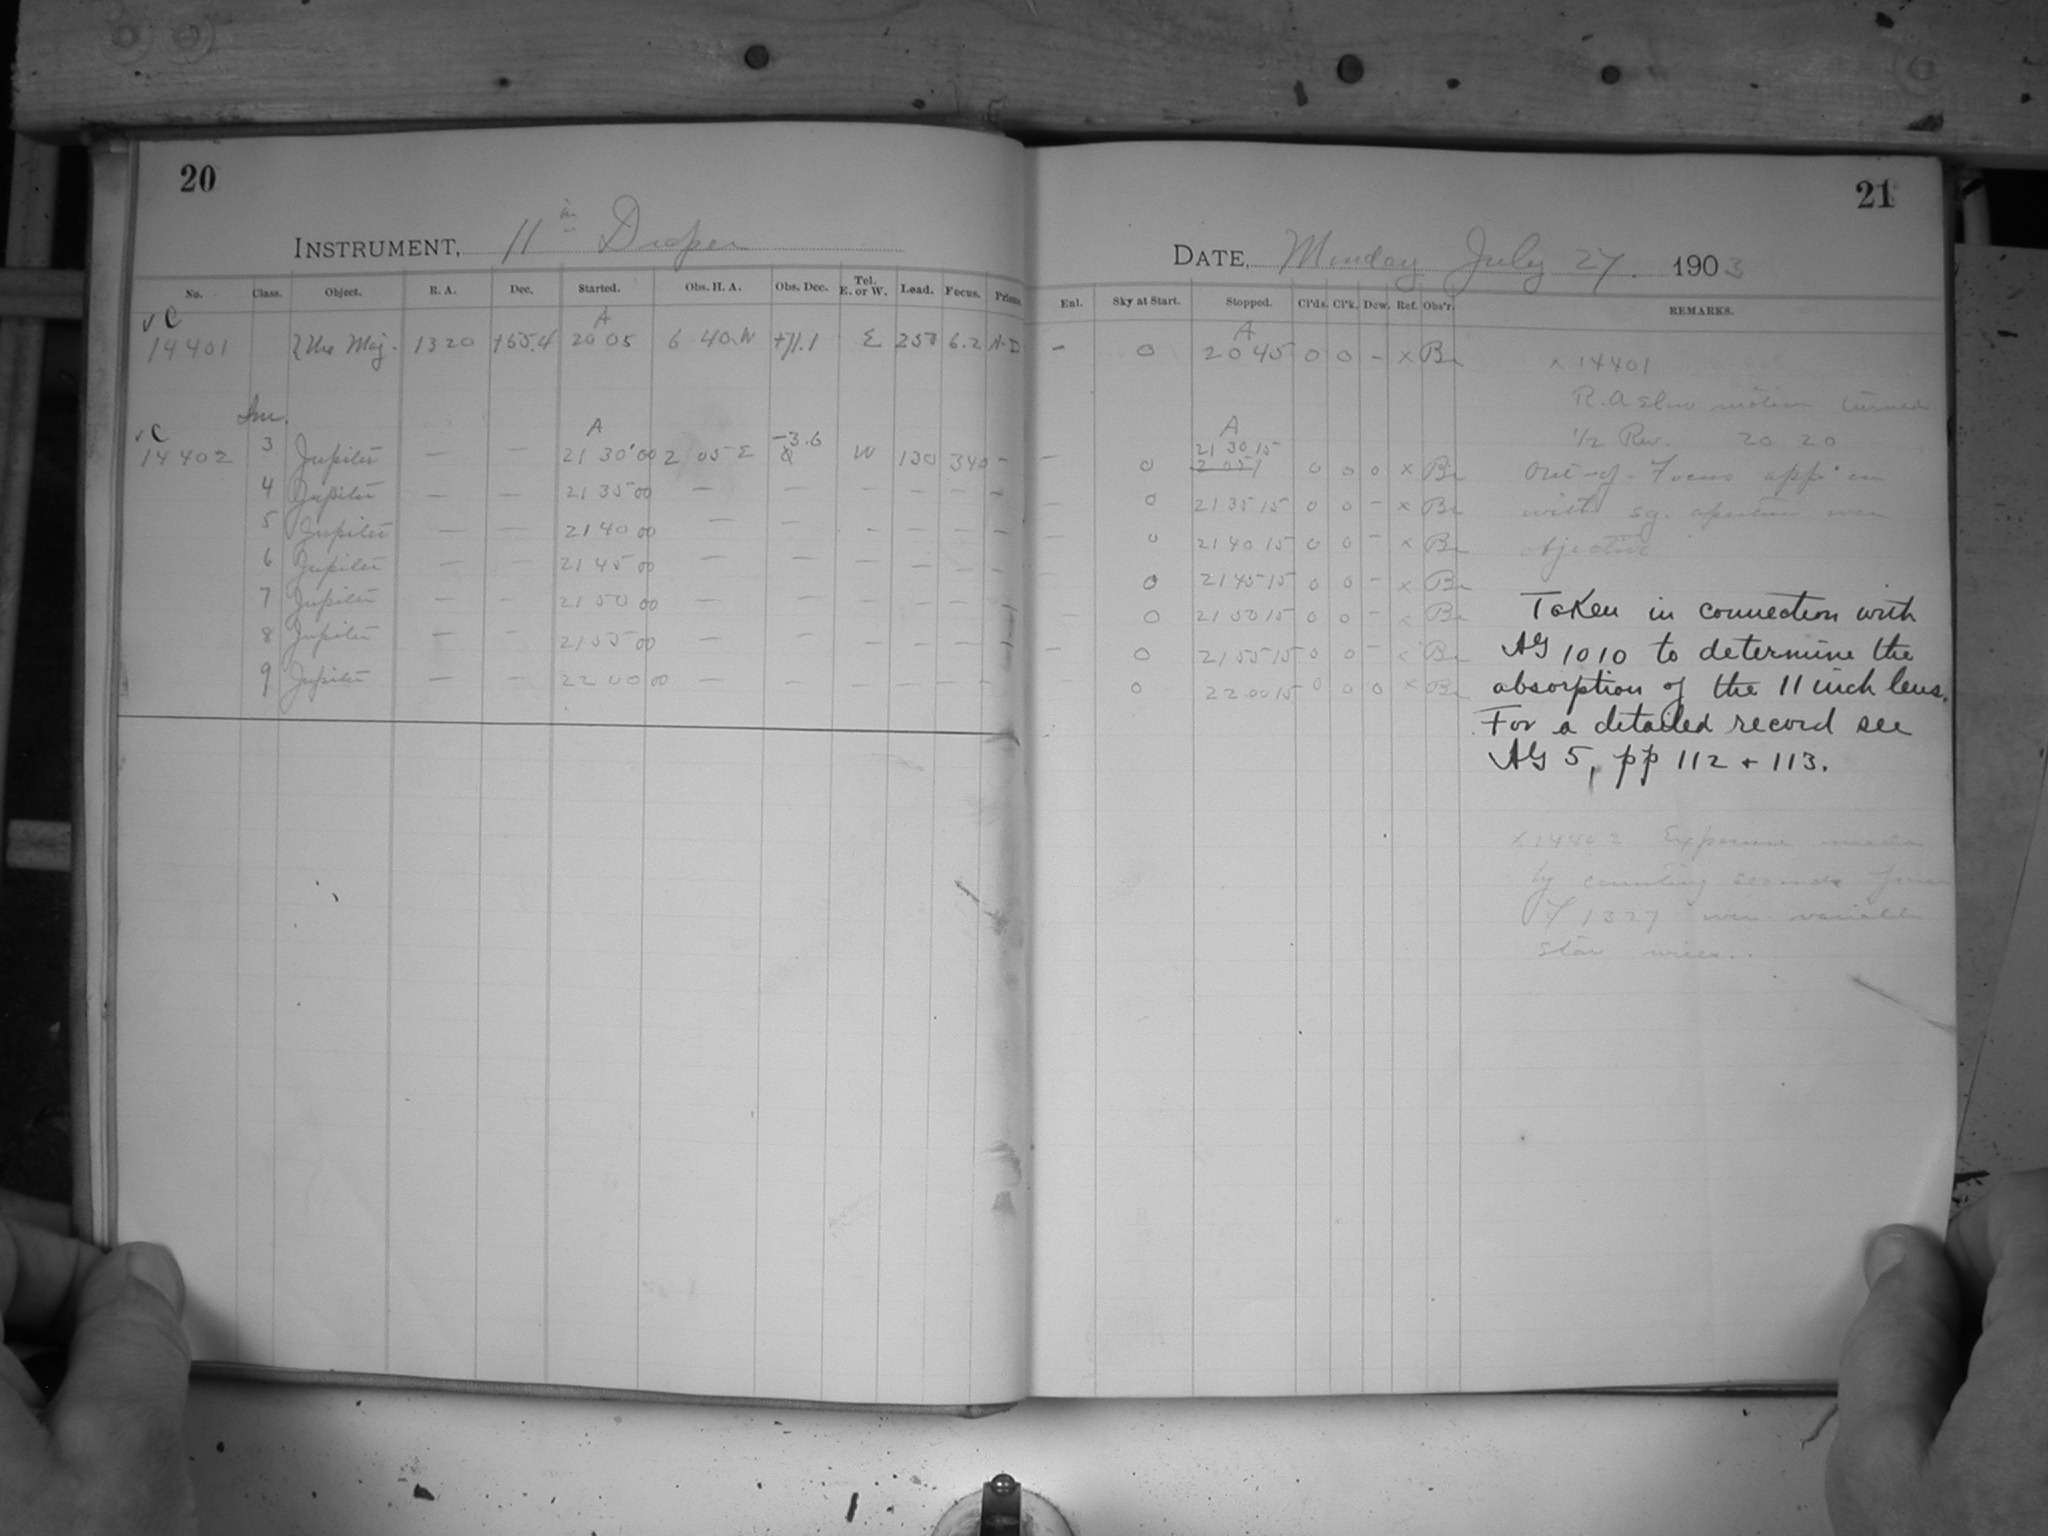 20
INSTRUMENT, 11 in Draper
No. Class. Object. R. A. Dec. Started. Obs. H. A. Obs. Dec. Tel. E. or W. Load. Focus. Prisms
v C A
14401 ζ Urs Maj. 13 20 +55.4 20 05 6 40 W +71.1 E 6.2
v C A
14402 3 Jupiter — — 21 30 00 2 05 E -3.6 W 130 340 -
4 Jupiter — — 21 35 00 — — — — — —
5 Jupiter — — 21 40 00 — — — — — —
6 Jupiter — — 21 45 00 — — — — — —
7 Jupiter — — 21 50 00 — — — — — —
8 Jupiter — — 21 55 00 — — — — — —
9 Jupiter — — 22 00 00 — — — — — —
21
DATE, Monday July 27. 1903
Enl. Sky at Start. Stopped. Cl'ds. Cl'k. Dew. Ref. Obs'r. REMARKS.
A
— 0 20 45 0 0 - x x 14401
R.A slow motion turned
1/2 Rev. 20 20
A
— 0 21 30 15 0 0 0 x
— 0 21 35 15 0 0 - x
— 0 21 40 15 0 0 - x
— 0 21 45 15 0 0 - x
— 0 21 50 15 0 0 - x
— 0 21 55 15 0 0 - x
0 22 00 15 0 0 0 x
Out-of-Focus
with sq. aperture over
objective
Taken in connection with
AG 1010 to determine the
absorption of the 11 inch lens.
For a detailed record see
AG 5, pp 112 + 113.
x 14402 Exposures made
by counting seconds from
1327 over variable
star wires.